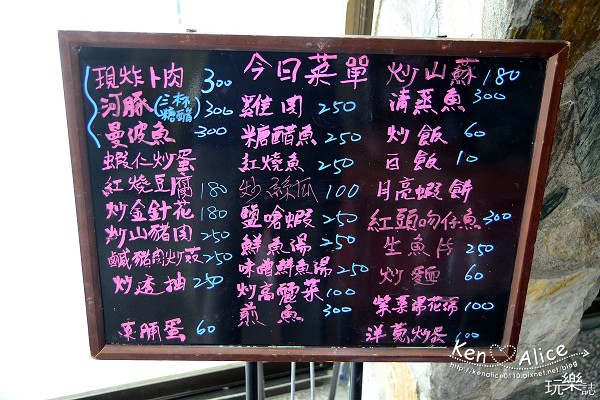 今日菜單
現炸卜肉 300
河豚(三杯 糖醋) 300
曼波魚 300
蝦仁炒蛋
紅燒豆腐 180
炒金針花 180
炒山豬肉 250
鹹豬肉炒蒜 250
炒透抽 250
皮蛋 60
雞肉 250
糖醋魚 250
紅燒魚 250
炒絲瓜 100
鹽嗆蝦 250
鮮魚湯 250
味噌鮮魚湯 250
炒高麗菜 100
煎魚 300
炒山蘇 180
清蒸魚 300
炒飯 60
白飯 10
月亮蝦餅
紅頭吻仔魚 300
生魚片 250
炒麵 60
紫菜湯花湯 100
洋蔥炒蛋 100
Ken♡Alice
http://kenalice0110.pixnet.net/blog
玩樂誌